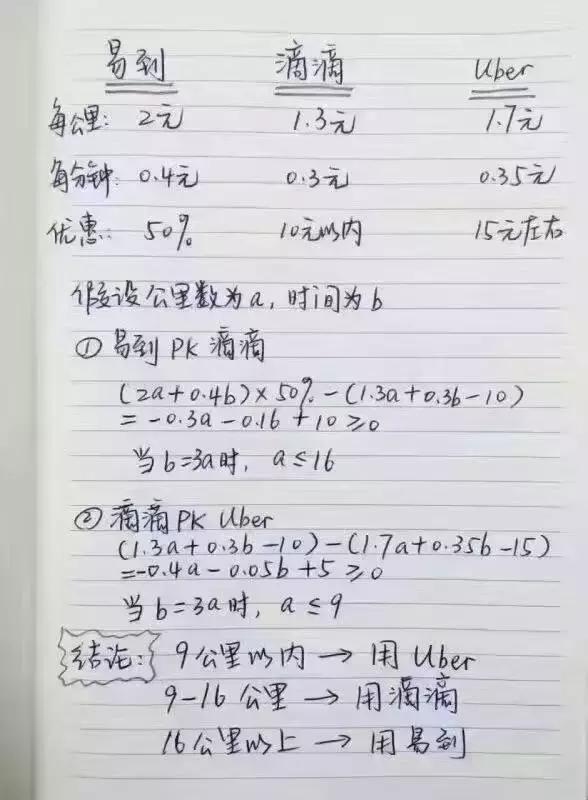 易到 滴滴 Uber
每公里: 2元 1.3元 1.7元
每分钟: 0.4元 0.3元 0.35元
优惠: 50% 10元以内 15元左右
假设公里数为a,时间为b
① 易到 PK 滴滴
(2a+0.4b)×50%-(1.3a+0.3b-10)
=-0.3a-0.1b+10≥0
当b=3a时, a≤16
② 滴滴 PK Uber
(1.3a+0.3b-10)-(1.7a+0.35b-15)
=-0.4a-0.05b+5≥0
当b=3a时, a≤9
结论: 9公里以内→用Uber
9-16公里→用滴滴
16公里以上→用易到